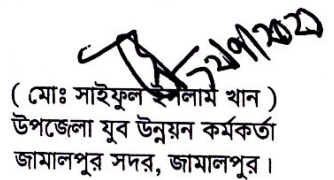 ( মোঃ সাইফুল ইসলাম খান )
উপজেলা যুব উন্নয়ন কর্মকর্তা
জামালপুর সদর, জামালপুর।